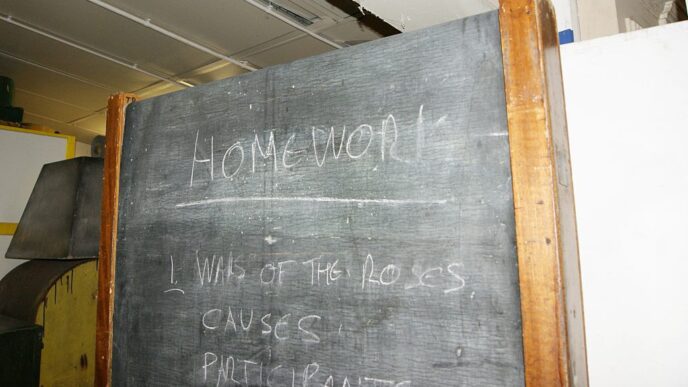 HOMEWORK
1. WARS OF THE ROSES.
CAUSES.
PARTICIPANTS